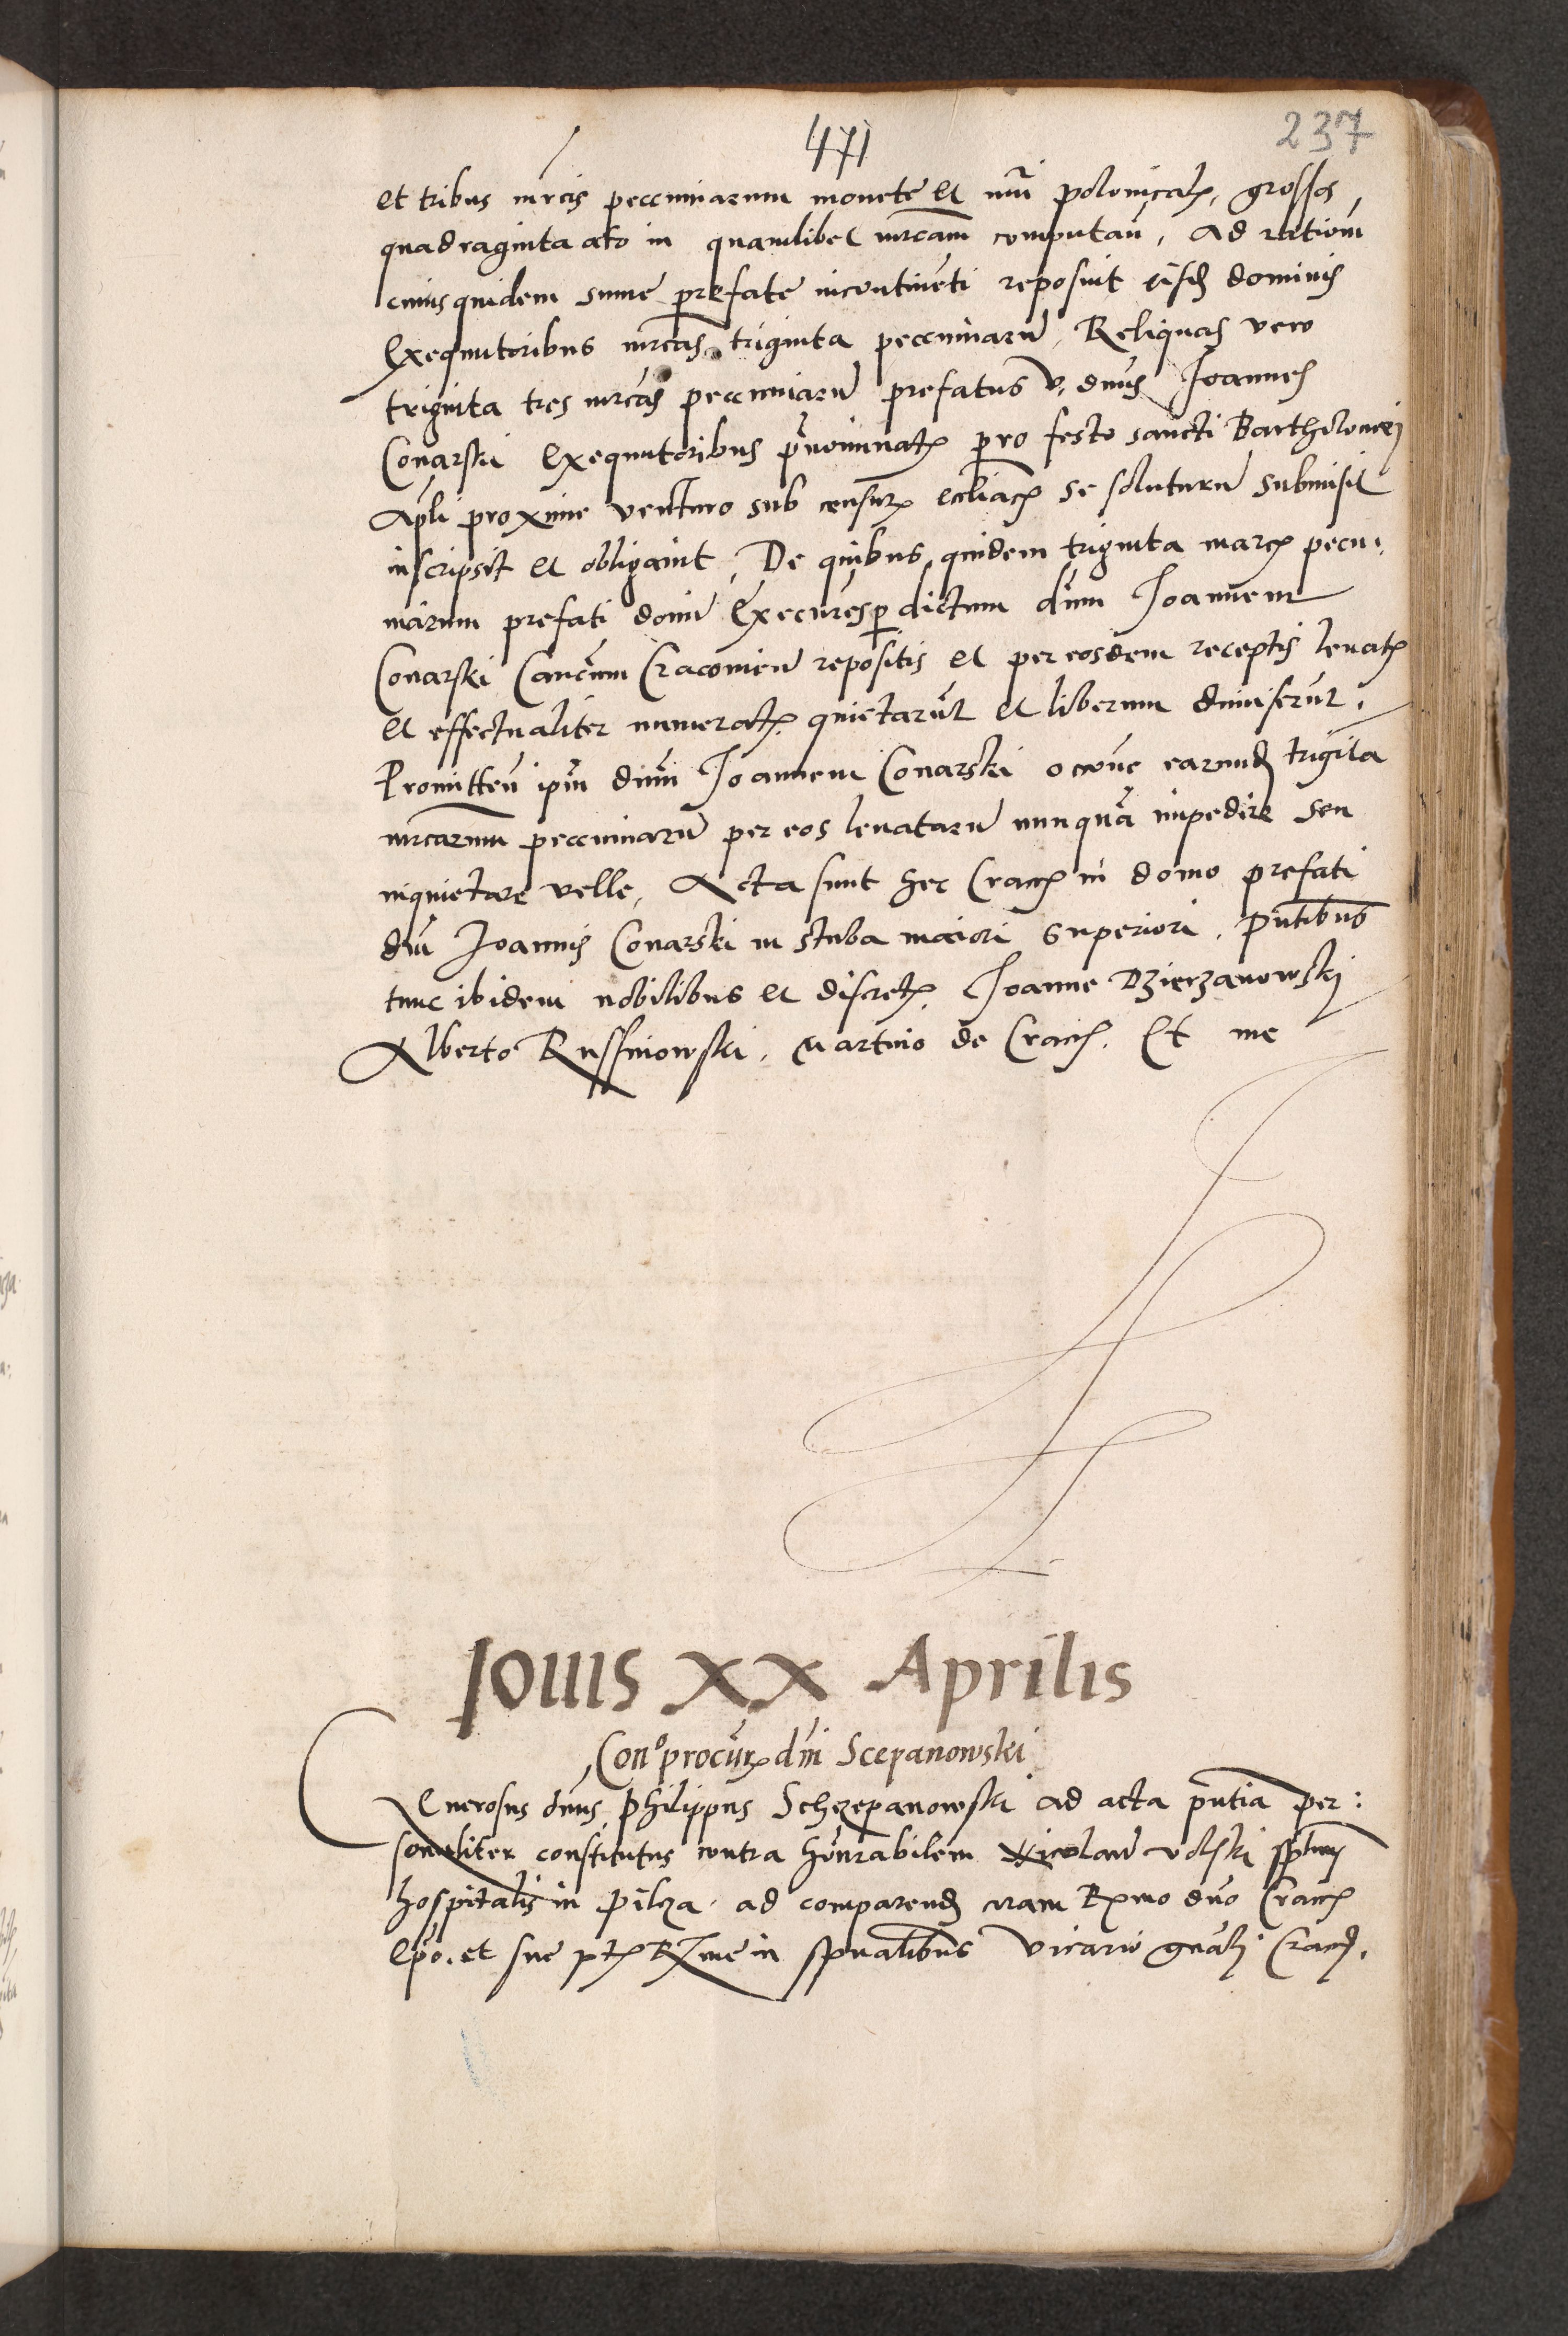 471
237
et tribus mrcis peccuniarum monete et nũi polonicalꝭ, grossos,
quadraginta octo in quamlibet mrcam computan̄, Ad rationem
cuius quidem sume prefate incontinẽti reposuit eisdẽ dominis
Exequutoribus mrcas triginta peccuniarũ, Reliquas vero
triginta tres mrcas peccuniarũ prefatus v. dnus Joannes
Conarski Exequutoribus prẽnominatꝭ pro festo sancti Bartholomei
Apli proxime venturo sub censurꝭ eccliacꝭ se soluturũ submisit
inscripsit et obligauit, De quibus quidem triginta marcꝭ pecu:
niarum prefati domini Execures per dictum dnum Joannem
Conarski Cancum Cracouien̄ repositis et per eosdem receptis leuatꝭ
et effectualiter numeratꝭ quietarũt et liberum dimiserũt.
Promitten̄ ipm dnum Joannem Conarski occone earundẽ trigĩta
mrcarum peccuniarũ per eos leuatarũ nunquã impedire seu
inquietare velle, Acta sunt hec Cracꝭ in domo prefati
dni Joannis Conarski in stuba maiori superiori, pntibus
tunc ibidem nobilibus et discretꝭ Joanne Dzierzanowski
Alberto Russinowski, Martino de Cracꝭ. Et me
Jouis XX Aprilis
Con° procurꝭ dni Scepanowski
Generosus dnus Philippus Schczepanowski ad acta pntia per:
sonaliter constitutus contra honorabilem Nicolaũ Volski
hospitalis in Pilza ad comparendẽ coram Rmo dno Cracꝭ
epo. et sue ptꝭ Rme in spualibus Vicario gnali Cracꝭ.